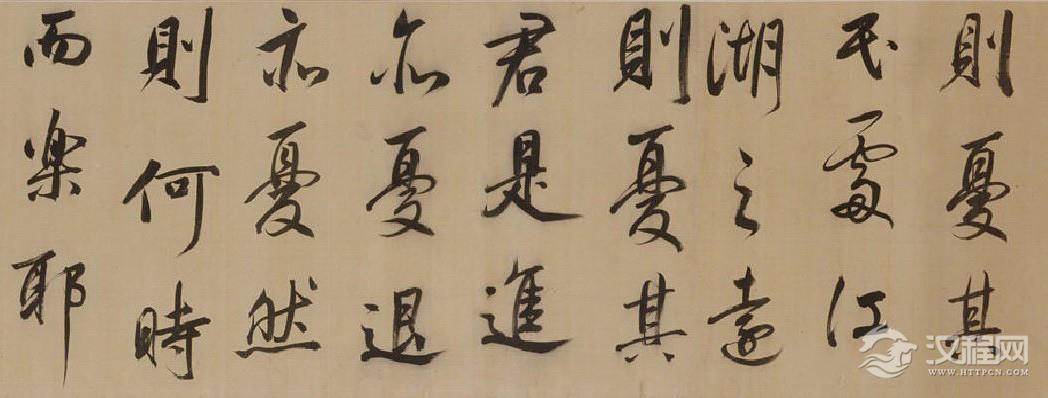 則憂其
民處江
湖之遠
則憂其
君是進
亦憂退
亦憂然
則何時
而樂耶
汉程网
WWW.HTTPCN.COM